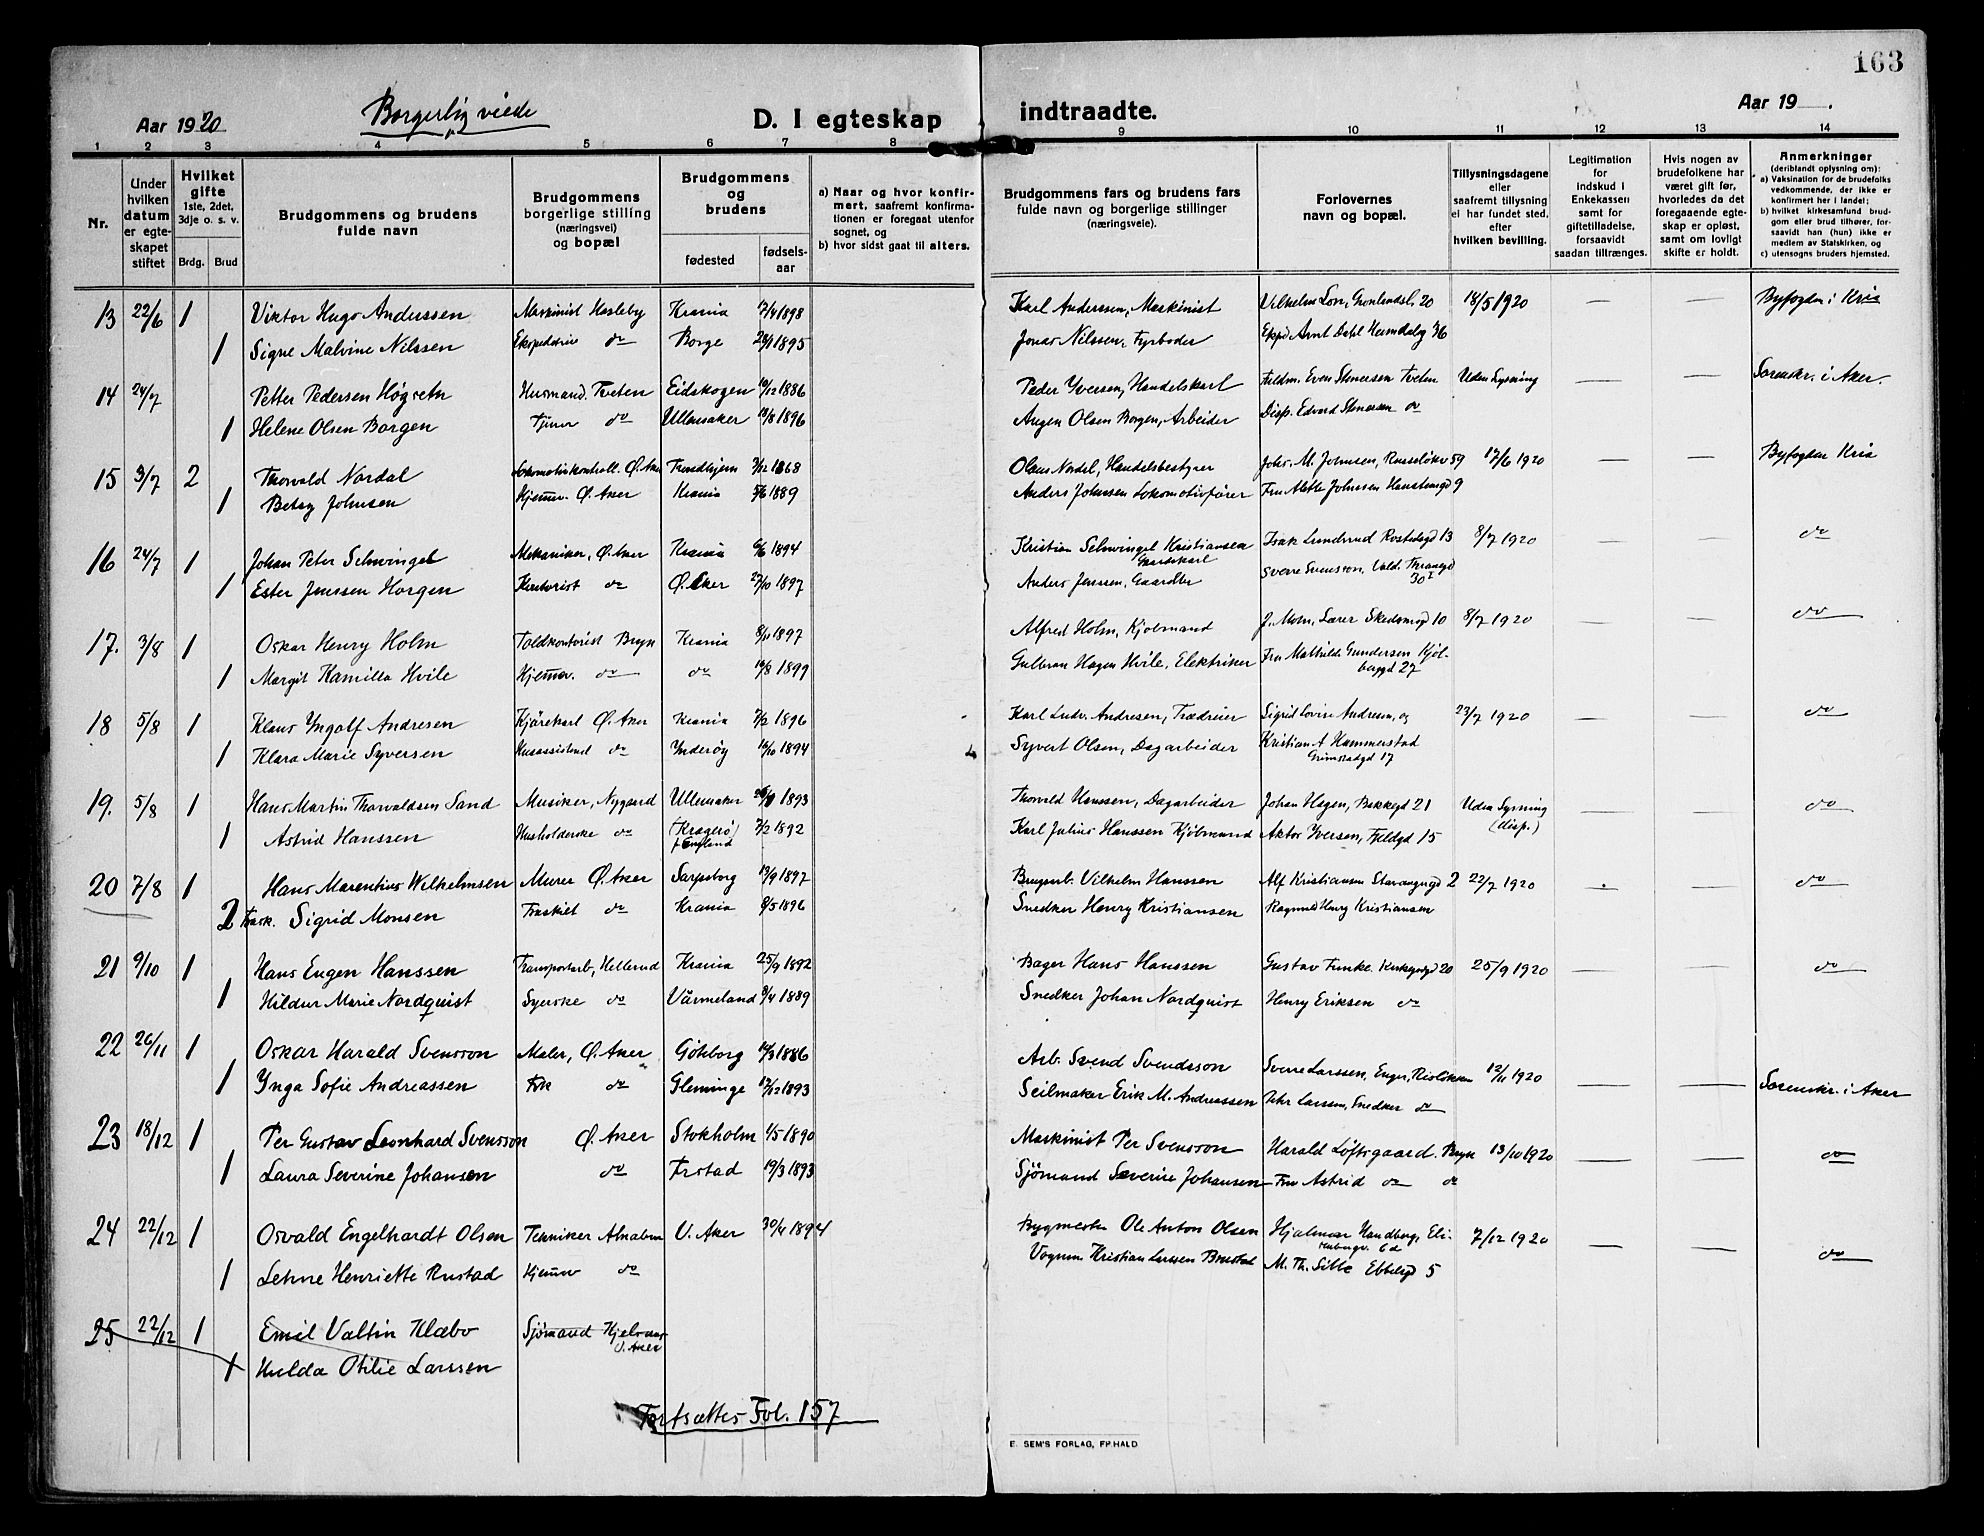 163
Aar 1920 Borgerlig viede D. I egteskap indtraadte. Aar 19 .
1 2 3 4 5 6 7 8 9 10 11 12 13 14
Nr.
Under hvilken datum er egteskapet stiftet
Hvilket gifte 1ste, 2det, 3dje o. s. v.
Brdg. Brud
Brudgommens og brudens fulde navn
Brudgommens borgerlige stilling (næringsvei) og bopæl
Brudgommens og brudens
fødested fødselsaar
a) Naar og hvor konfirmert, saafremt konfirmationen er foregaat utenfor sognet, og
b) hvor sidst gaat til alters.
Brudgommens fars og brudens fars fulde navn og borgerlige stillinger (næringsveie).
Forlovernes navn og bopæl.
Tillysningsdagene eller saafremt tillysning ei har fundet sted, efter hvilken bevilling.
Legitimation for indskud i Enkekassen samt for giftetilladelse, forsaavidt saadan tiltrænges.
Hvis nogen av brudefolkene har været gift før, hvorledes da det foregaaende egteskap er opløst, samt om lovligt skifte er holdt.
Anmerkninger (deriblandt oplysning om):
a) Vaksination for de brudefolks vedkommende, der ikke er konfirmert her i landet;
b) hvilket kirkesamfund brudgom eller brud tilhører, forsaavidt han (hun) ikke er medlem av Statskirken, og
c) utensogns bruders hjemsted.
13 22/6 1 Viktor Hugo Anderssen Maskinist Hasleby Krania 17/4 1898 Karl Anderssen, Maskinist Vilhelm Grønlandsl. 20 18/5 1920 — — Byfogden i Kria
1 Signe Malvine Nilssen Ekspeditrice do Borge 1895 Jonas Nilssen, Fyrbøder Arnt Dahl
14 24/7 Petter Pedersen Høgsetn Husmand. Tveten Eidskogen 19/12 1886 Peder Yversen, Handelskarl Even Stenersen Tveten Uden Lysning — — Sorenskr. i Aker.
1 Helene Olsen Borgen Tjener do Ullensaker 18/8 1896 Augen Olsen Borgen, Arbeider Disp. Edvard Stenersen do
15 3/7 2 Thorvald Nordal Lokomotivkontroll. Ø. Aker Trondhjem 7/12 1868 Olaus Nordal, Handelsbestyrer Johs. M. Johnsen, Russeløkv 59 17/6 1920 — — Byfogden Kria
1 Betsy Johnsen Hjemmev. Ø. Aker Krania 5/6 1889 Anders Johnssen Lokomotivfører Fru Alette Johnssen 9
16 24/7 1 Johan Peter Schwingel Mekaniker, Ø. Aker Krania 6/6 1894 Kristian Schwingel Kristiansen Gaardskarl Isak Lundsrud Rostedsgd 13 8/7 1920 — — do
1 Ester Jenssen Horgen Kontorist do Ø. Aker 27/10 1897 Anders Jenssen, Gaardbr Sverre Svensson, Vald. Thranesgd 30
17. 3/8 1 Oskar Henry Holm Toldkontorist Bryn Krania 8/11 1897 Alfred Holm, Kjøbmand J. Holm, Lærer Skedsmogd 10 8/7 1920 — — do
1 Margit Kamilla Hvile Hjemmev. do do 19/8 1899 Gulbran Hagen Hvile, Elektriker Fru Mathilde Gundersen Kjølberggd 27
18 5/8 1 Klaus Yngolf Andresen Kjørekarl Ø. Aker Krania 7/2 1896 Karl Ludv. Andresen, Trædreier Sigrid Lovise Andresen, og 23/7 1920 — — do
1 Klara Marie Syversen Husassistend do Ynderøy 16/10 1894 Syvert Olsen, Dagarbeider Kristian A Hammerstad Grimstadgd 17
19. 5/8 1 Hans Martin Thorvaldsen Sand Musiker, Nygaard Ullensaker 1893 Thorvald Hanssen, Dagarbeider Johan Hagen, Bakkegd 21 Uden Lysning (disp.) — — do
1 Astrid Hanssen Husholderske do (Kragerø) f England 7/2 1892 Karl Julius Hanssen Kjøbmand Aktor Yversen, Fjeldgd 15
20 7/8 1 Hans Marentius Wilhelmsen Murer Ø. Aker Sarpsborg 19/9 1897 Brugsarb. Vilhelm Hanssen Alf Kristiansen Stavangergd 2 22/7 1920 — — do
2 Frask. Sigrid Monsen Fraskilt do Krania 8/5 1896 Snedker Henry Kristiansen Ragnvald Henry Kristiansen
21 9/10 1 Hans Eugen Hanssen Transportarb, Hellerud Krania 25/9 1892 Bager Hans Hanssen Gustav Funke. Kirkegogd 20 25/9 1920 — — do
1 Hildur Marie Nordquist Syerske do Värmeland 8/4 1889 Snedker Johan Nordquist Henry Eriksen do
22 26/11 1 Oskar Harald Svensson Maler, Ø. Aker Göteborg 14/3 1886 Arb. Svend Svendsson Sverre Larssen, Engr, Risløkken 12/11 1920 — — Sorenskr. i Aker
1 Ynga Sofie Andreassen Frk do Gleminge 17/12 1893 Seilmaker Erik M. Andreassen Larssen, Snedker do
23 18/12 1 Per Gustav Leonhard Svensson Ø. Aker Stokholm 4/5 1890 Maskinist Per Svensson Harald Løftsgaard. Bryn 13/10 1920 — — do
1 Laura Severine Johansen do Frstad 19/3 1893 Sjømand Severin Johansen Fru Astrid do do
24 22/12 1 Osvald Engelhardt Olsen Tekniker Alnabru V. Aker 30/4 1894 Bygmester Ole Anton Olsen Hjalmar Handberg, Elisenbergv. 6d 7/12 1920 — — do
1 Lehne Henriette Rustad Hjemmev do Vognm Kristian Larssen Rustad M. Th. Sitte Ebbelsgd 5
25 22/12 1 Emil Valtin Klæbo Sjømand Hjelmsør V. Aker
1 Hulda Otilie Larssen
Fortsættes Fol. 157
E. SEM'S FORLAG, FR.HALD